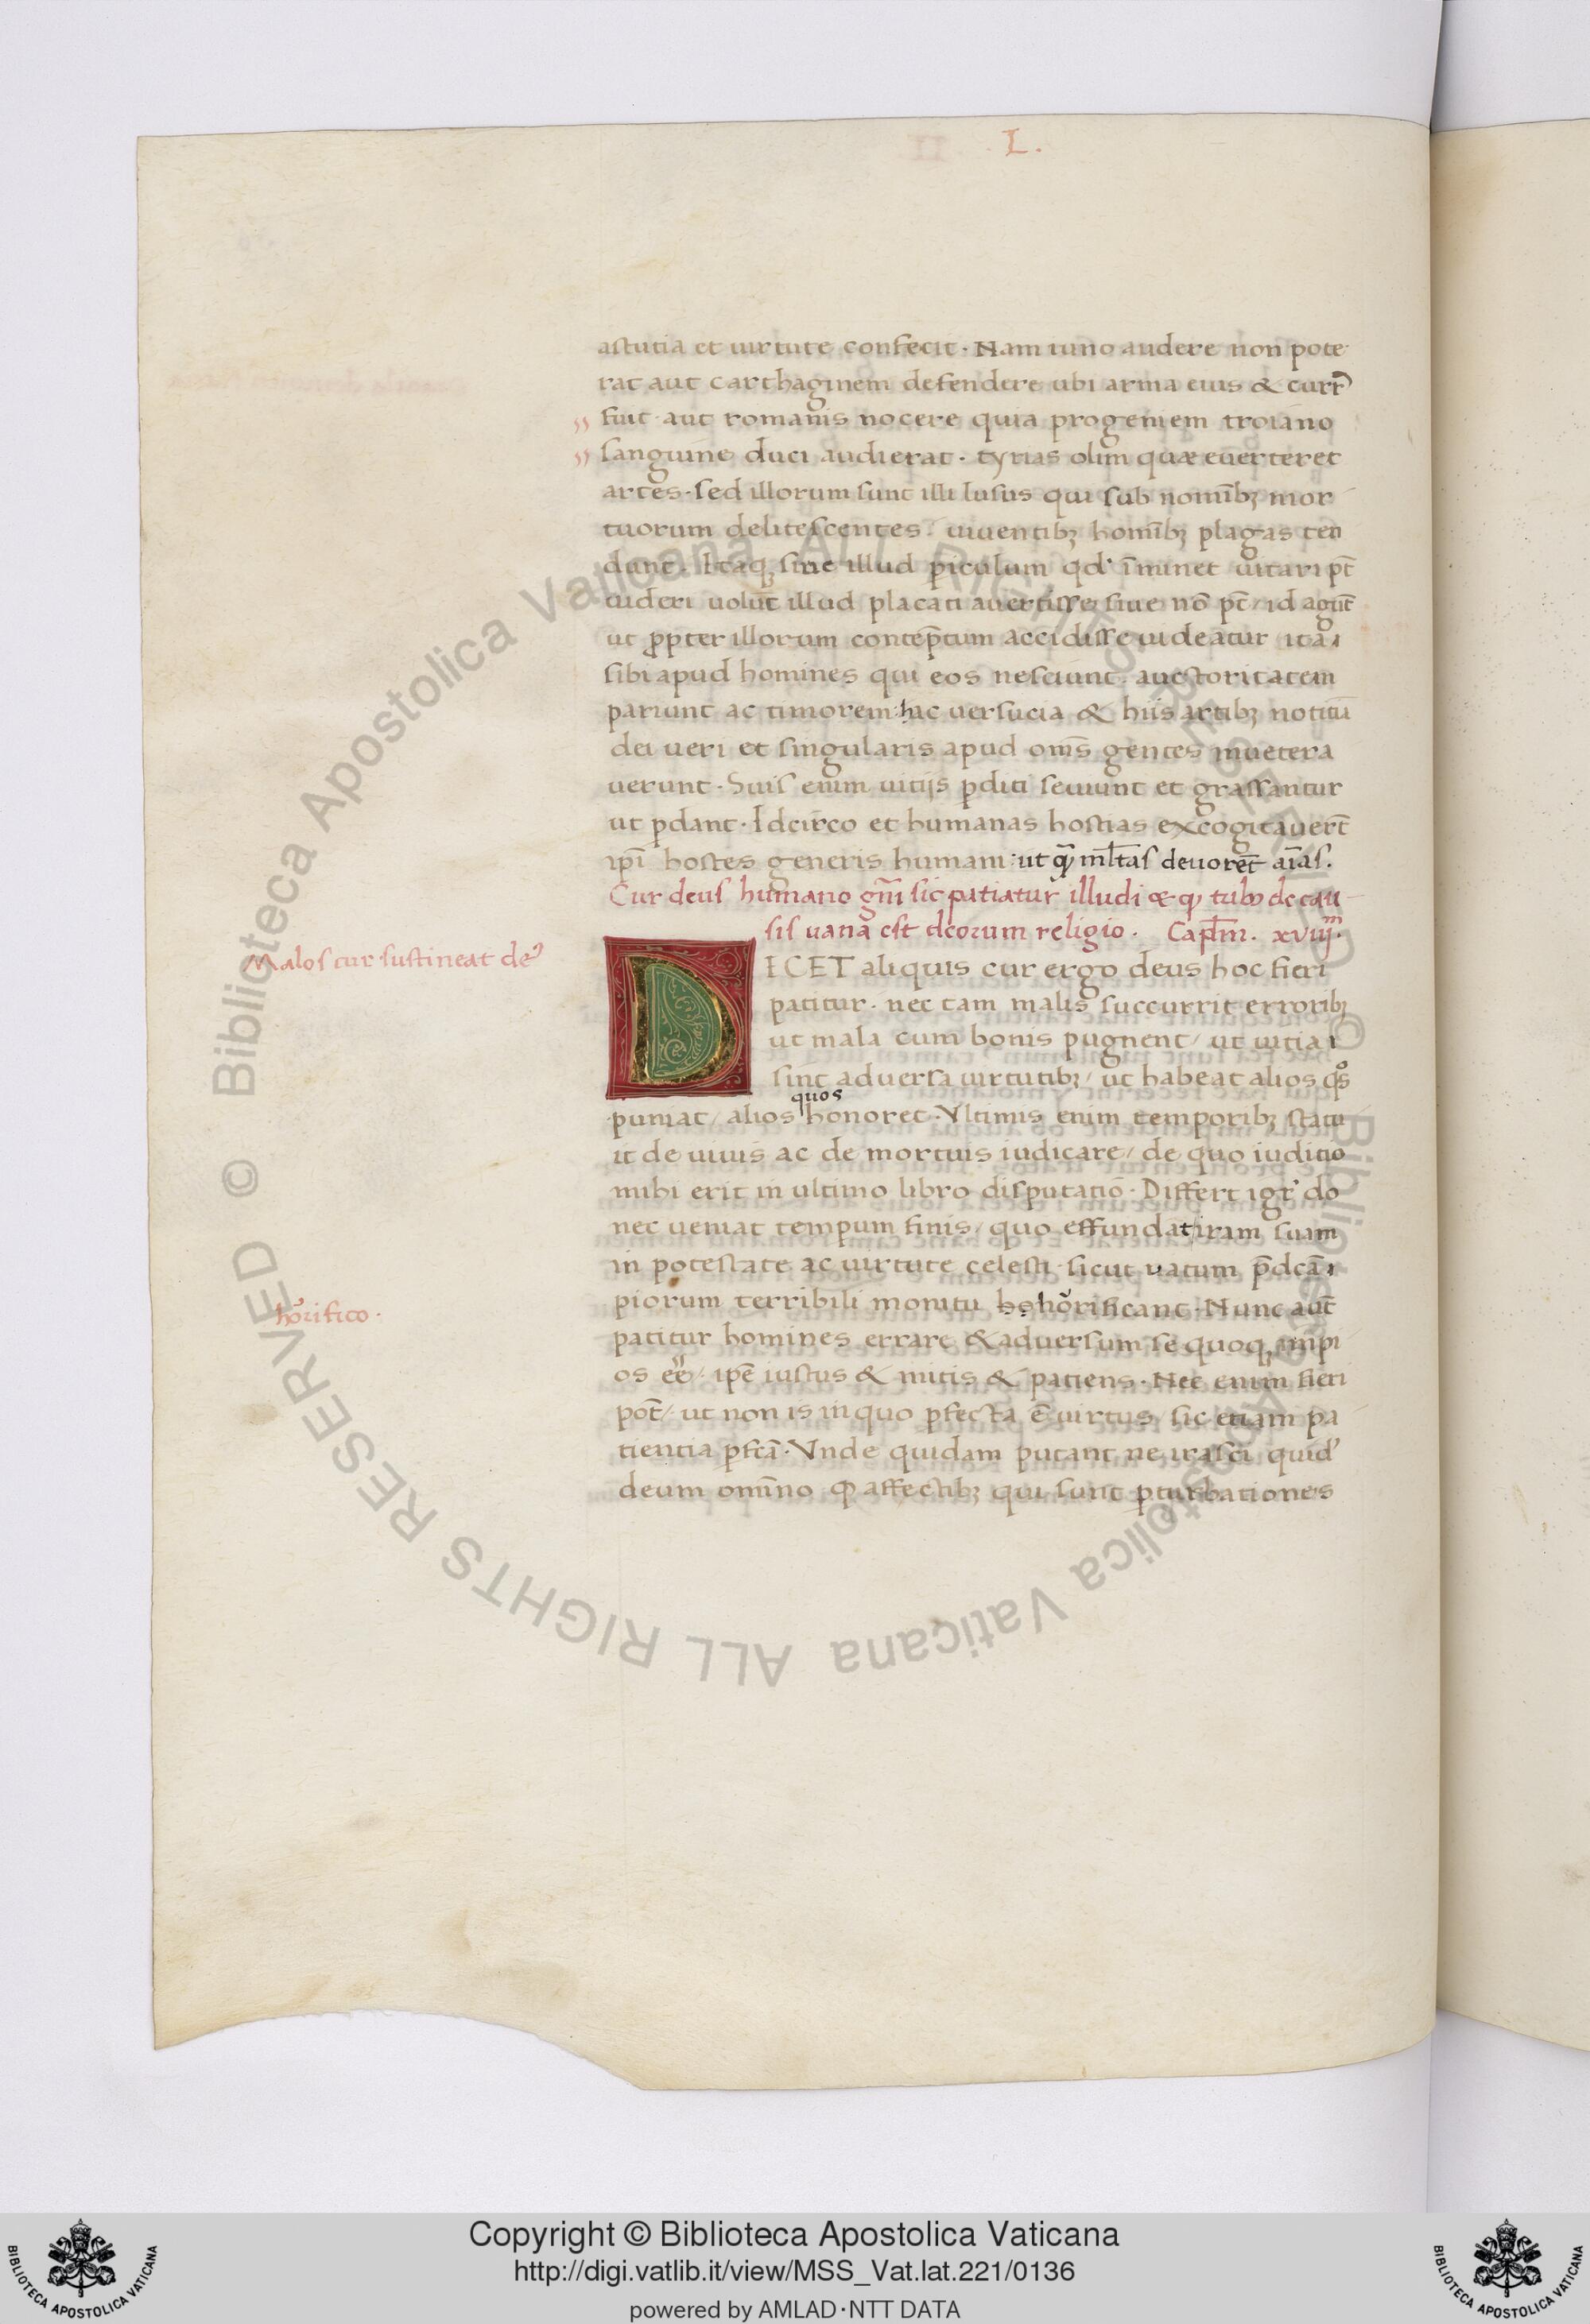 L.
astutia et uirtute confecit. Nam iuno audere non pote
rat aut carthaginem defendere ubi arma eius & curr᷒
fuit aut romanis nocere quia progeniem troiano
sanguine duci audierat. tyrias olim quæ euerteret
artes. sed illorum sunt illi lusus qui sub nomībꝫ mor
tuorum delitescentes / uiuentibꝫ homībꝫ plagas ten
dunt. Itaqꝫ siue illud ꝑiculum qd' īminet uitari pt̄
uideri uolūt illud placati auertisse siue nō pt̄ / id agūt
ut ꝓpter illorum contēptum accidisse uideatur ita
sibi apud homines qui eos nesciunt auctoritatem
pariunt ac timorem hac uersucia & hiis artibꝫ notitiā
dei ueri et singularis apud om̄s gentes inuetera
uerunt. Suis enim uitijs ꝑditi seuiunt et grassantur
ut ꝑdant. Idcirco et humanas hostias excogitauer̄t
ip̄i hostes generis humani: ut q̄ꝫ ml̄tas deuorēt aīas.
Cur deus humano gn̄i sic patiatur illudi & qꝫ tribꝫ de cau
sis uana est deorum religio. Cap̄lm. xviijm.
Malos cur sustineat de᷒
DICET aliquis cur ergo deus hoc fieri
patitur. nec tam malis succurrit erroribꝫ
ut mala cum bonis pugnent / ut uitia
sint aduersa uirtutibꝫ / ut habeat alios qo̊s
puniat / alios quos honoret. Vltimis enim temporibꝫ statu
it de uiuis ac de mortuis iudicare / de quo iuditio
mihi erit in ultimo libro disputatiō. Differt igr̄ do
nec ueniat tempum finis / quo effundat iram suam
in potestate ac uirtute celesti sicut uatum p̄dcā
piorum terribili monitu ho hōrificant. Nunc aūt
hōrifico.
patitur homines errare & aduersum se quoqꝫ impi
os eē / ipē iustus & mitis & patiens. Nec enim fieri
pot̄ / ut non is in quo ꝑfecta ē uirtus / sic etiam pa
tientia ꝑfcā. Vnde quidam putant ne irasci quid'
deum omīno ꝙ affectibꝫ qui sunt ꝑturbationes
© Biblioteca Apostolica Vaticana ALL RIGHTS RESERVED © Biblioteca Apostolica Vaticana ALL RIGHTS RESERVED
BIBLIOTECA APOSTOLICA VATICANA
Copyright © Biblioteca Apostolica Vaticana
http://digi.vatlib.it/view/MSS_Vat.lat.221/0136
powered by AMLAD·NTT DATA
BIBLIOTECA APOSTOLICA VATICANA